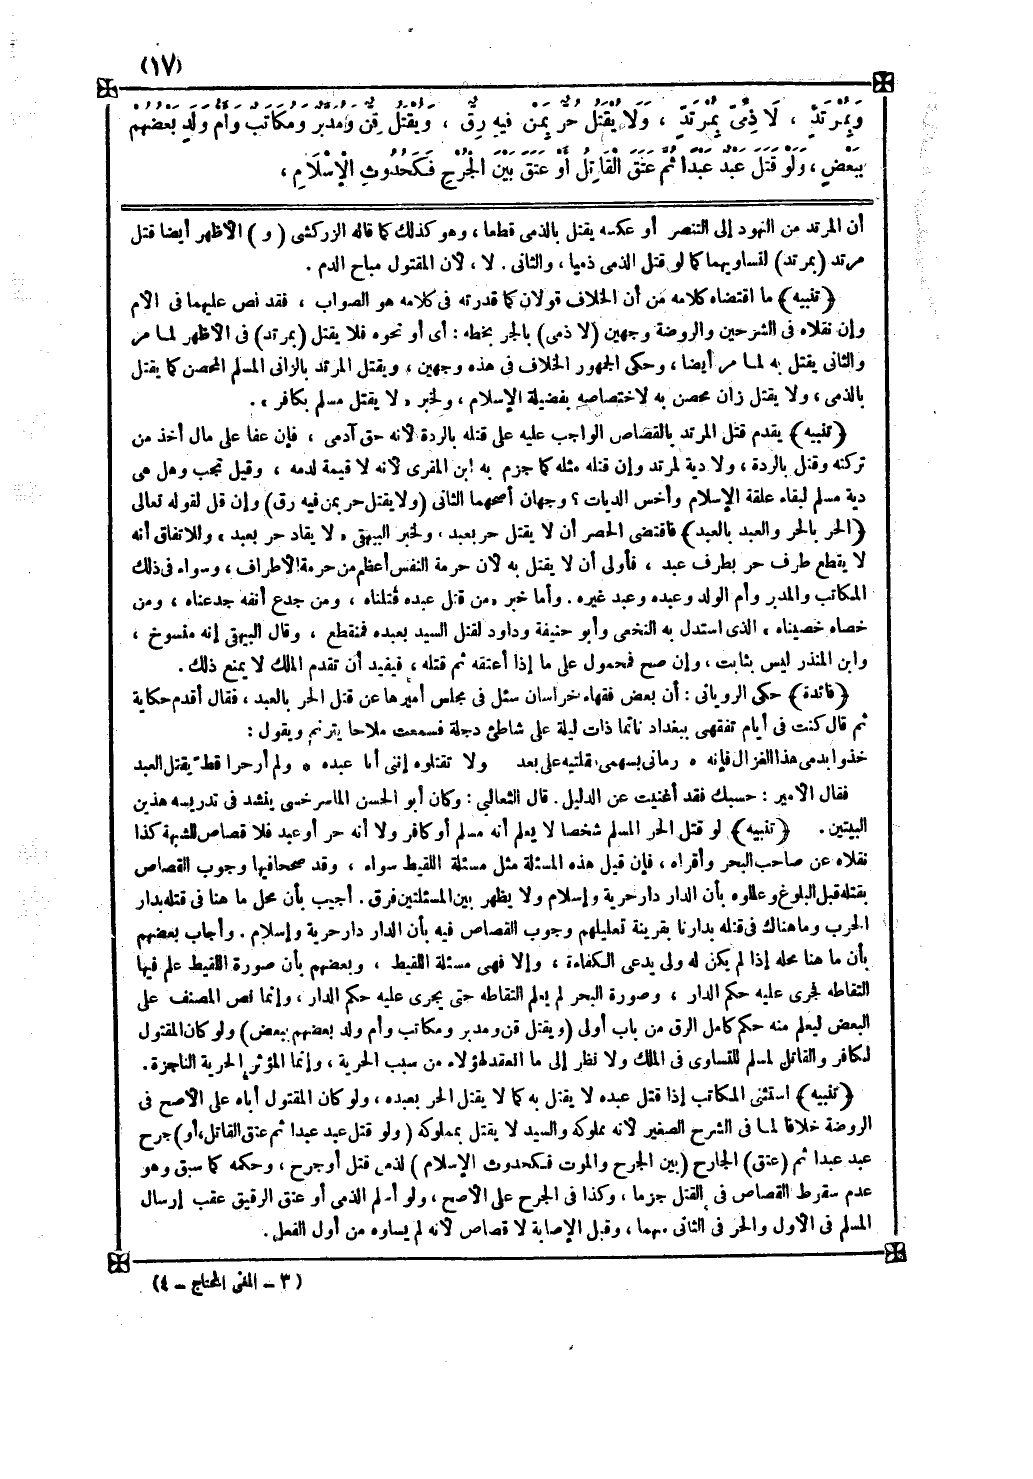 (١٧)
وَبِمُرْتَدٍّ ، لَا ذِمِّىٌّ بِمُرْتَدٍّ ، وَلَا يُقْتَلُ حُرٌّ بِمَنْ فِيهِ رِقٌّ ، وَيُقْتَلُ قِنٌّ وَمُدَبَّرٌ وَمُكَاتَبٌ وَأُمُّ وَلَدٍ بَعْضُهُمْ
بِبَعْضٍ ، وَلَوْ قَتَلَ عَبْدٌ عَبْدًا ثُمَّ عَتَقَ الْقَاتِلُ أَوْ عَتَقَ بَيْنَ الْجُرْحِ فَكَحُدُوثِ الْإِسْلَامِ ،
أن المرتد من التهود إلى التنصر أو عكسه يقتل بالذمى قطعا ، وهو كذلك كما قاله الزركشى ( و ) الأظهر أيضا قتل
مرتد (بمرتد) لتساويهما كما لو قتل الذمى ذميا ، والثانى . لا ، لأن المقتول مباح الدم .
﴿تنبيه﴾ ما اقتضاه كلامه من أن الخلاف قولان كما قدرته فى كلامه هو الصواب ، فقد نص عليهما فى الأم
وإن نقلاه فى الشرحين والروضة وجهين (لا ذمى) بالجر بخطه : أى أو نحوه فلا يقتل (بمرتد) فى الأظهر لما مر
والثانى يقتل به لما مر أيضا ، وحكى الجمهور الخلاف فى هذه وجهين ، ويقتل المرتد بالزانى المسلم المحصن كما يقتل
بالذمى ، ولا يقتل زان محصن به لاختصاصه بفضيلة الإسلام ، ولخبر « لا يقتل مسلم بكافر » .
﴿تنبيه﴾ يقدم قتل المرتد بالقصاص الواجب عليه على قتله بالردة لأنه حق آدمى ، فإن عفا على مال أخذ من
تركته وقتل بالردة ، ولا دية لمرتد وإن قتله مثله كما جزم به ابن المقرى لأنه لا قيمة لدمه ، وقيل تجب وهل هى
دية مسلم لبقاء علقة الإسلام أو أخس الديات ؟ وجهان أصحهما الثانى (ولا يقتل حر بمن فيه رق) وإن قل لقوله تعالى
﴿الحر بالحر والعبد بالعبد﴾ فاقتضى الحصر أن لا يقتل حر بعبد ، ولخبر البيهقى « لا يقاد حر بعبد » وللاتفاق أنه
لا يقطع طرف حر بطرف عبد ، فأولى أن لا يقتل به لأن حرمة النفس أعظم من حرمة الأطراف ، وسواء فى ذلك
المكاتب والمدبر وأم الولد وعبده وعبد غيره . وأما خبر «من قتل عبده قتلناه ، ومن جدع أنفه جدعناه ، ومن
خصاه خصيناه » الذى استدل به النخعى وأبو حنيفة وداود لقتل السيد بعبده فمنقطع ، وقال البيهقى إنه منسوخ ،
وابن المنذر ليس بثابت ، وإن صح فمحمول على ما إذا أعتقه ثم قتله ، فيفيد أن تقدم الملك لا يمنع ذلك .
﴿فائدة﴾ حكى الرويانى : أن بعض فقهاء خراسان سئل فى مجلس أميرها عن قتل الحر بالعبد ، فقال أقدم حكاية
ثم قال كنت فى أيام تفقهى ببغداد نائما ذات ليلة على شاطئ دجلة فسمعت ملاحا يترنم ويقول :
خذوا بدمى هذا الغزال فإنه * رمانى بسهمى مقلتيه على عمد ولا تقتلوه إننى أنا عبده * ولم أر حرا قط يقتل العبد
فقال الأمير : حسبك فقد أغنيت عن الدليل . قال الثعالبى : وكان أبو الحسن الماسرخسى ينشد فى تدريسه هذين
البيتين . ﴿تنبيه﴾ لو قتل الحر المسلم شخصا لا يعلم أنه مسلم أو كافر ولا أنه حر أو عبد فلا قصاص للشبهة كذا
نقلاه عن صاحب البحر وأقراه ، فإن قيل هذه المسئلة مثل مسئلة اللقيط سواء ، وقد صححا فيها وجوب القصاص
بقتله قبل البلوغ وعللوه بأن الدار دار حرية وإسلام ولا يظهر بين المسئلتين فرق . أجيب بأن محل ما هنا فى قتله بدار
الحرب وما هناك فى قتله بدارنا بقرينة تعليلهم وجوب القصاص فيه بأن الدار دار حرية وإسلام . وأجاب بعضهم
بأن ما هنا محله إذا لم يكن له ولى يدعى الكفاءة ، وإلا فهى مسئلة اللقيط ، وبعضهم بأن صورة اللقيط علم فيها
التقاطه فجرى عليه حكم الدار ، وصورة البحر لم يعلم التقاطه حتى يجرى عليه حكم الدار ، وإنما نص المصنف على
البعض ليعلم منه حكم كامل الرق من باب أولى (ويقتل قن ومدبر ومكاتب وأم ولد بعضهم ببعض) ولو كان المقتول
لكافر والقاتل لمسلم للتساوى فى الملك ولا نظر إلى ما انعقد لهؤلاء من سبب الحرية ، وإنما المؤثر الحرية الناجزة .
﴿تنبيه﴾ استثنى المكاتب إذا قتل عبده لا يقتل به كما لا يقتل الحر بعبده ، ولو كان المقتول أباه على الأصح فى
الروضة خلافا لما فى الشرح الصغير لأنه مملوكه والسيد لا يقتل بمملوكه ( ولو قتل عبد عبدا ثم عتق القاتل ، أو) جرح
عبد عبدا ثم (عتق) الجارح (بين الجرح والموت فكحدوث الإسلام ) لذمى قتل أو جرح ، وحكمه كما سبق وهو
عدم سقوط القصاص فى القتل جزما ، وكذا فى الجرح على الأصح ، ولو أسلم الذمى أو عتق الرقيق عقب إرسال
المسلم فى الأول والحر فى الثانى سهما ، وقبل الإصابة لا قصاص لأنه لم يساوه من أول الفعل .
( ٣ - المغنى المحتاج - ٤ )